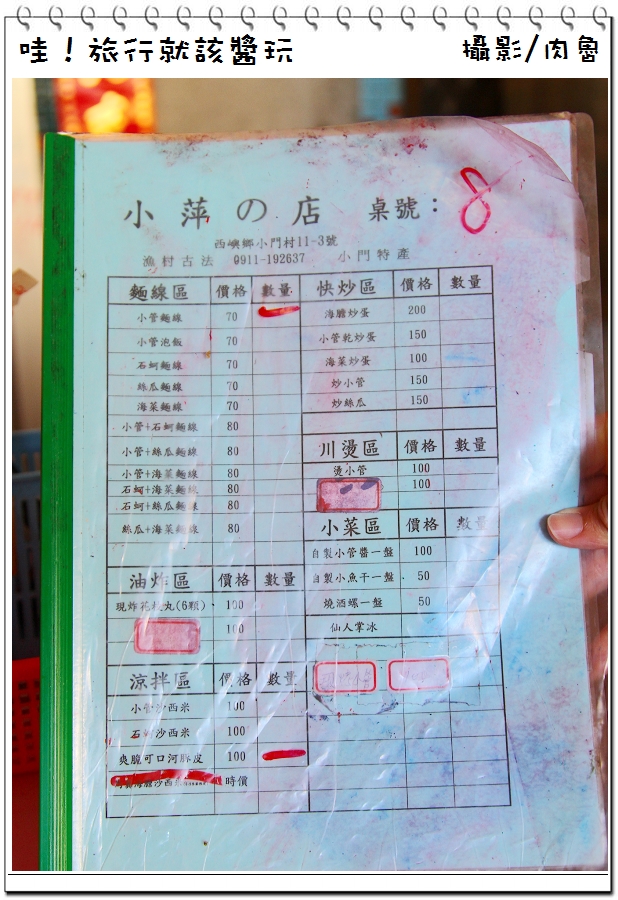 哇！旅行就該醬玩
攝影/肉魯
小萍の店 桌號：8
西嶼鄉小門村11-3號
漁村古法 0911-192637 小門特產
麵線區 價格 數量
小管麵線 70
小管泡飯 70
石蚵麵線 70
絲瓜麵線 70
海菜麵線 70
小管+石蚵麵線 80
小管+絲瓜麵線 80
小管+海菜麵線 80
石蚵+海菜麵線 80
石蚵+絲瓜麵線 80
絲瓜+海菜麵線 80
油炸區 價格 數量
現炸花枝丸(6顆) 100
100
涼拌區 價格 數量
小管沙西米 100
石蚵沙西米 100
爽脆可口河豚皮 100
海膽沙西米 時價
快炒區 價格 數量
海膽炒蛋 200
小管乾炒蛋 150
海菜炒蛋 100
炒小管 150
炒絲瓜 150
川燙區 價格 數量
燙小管 100
100
小菜區 價格 數量
自製小管醬一盤 100
自製小魚干一盤 50
燒酒螺一盤 50
仙人掌冰